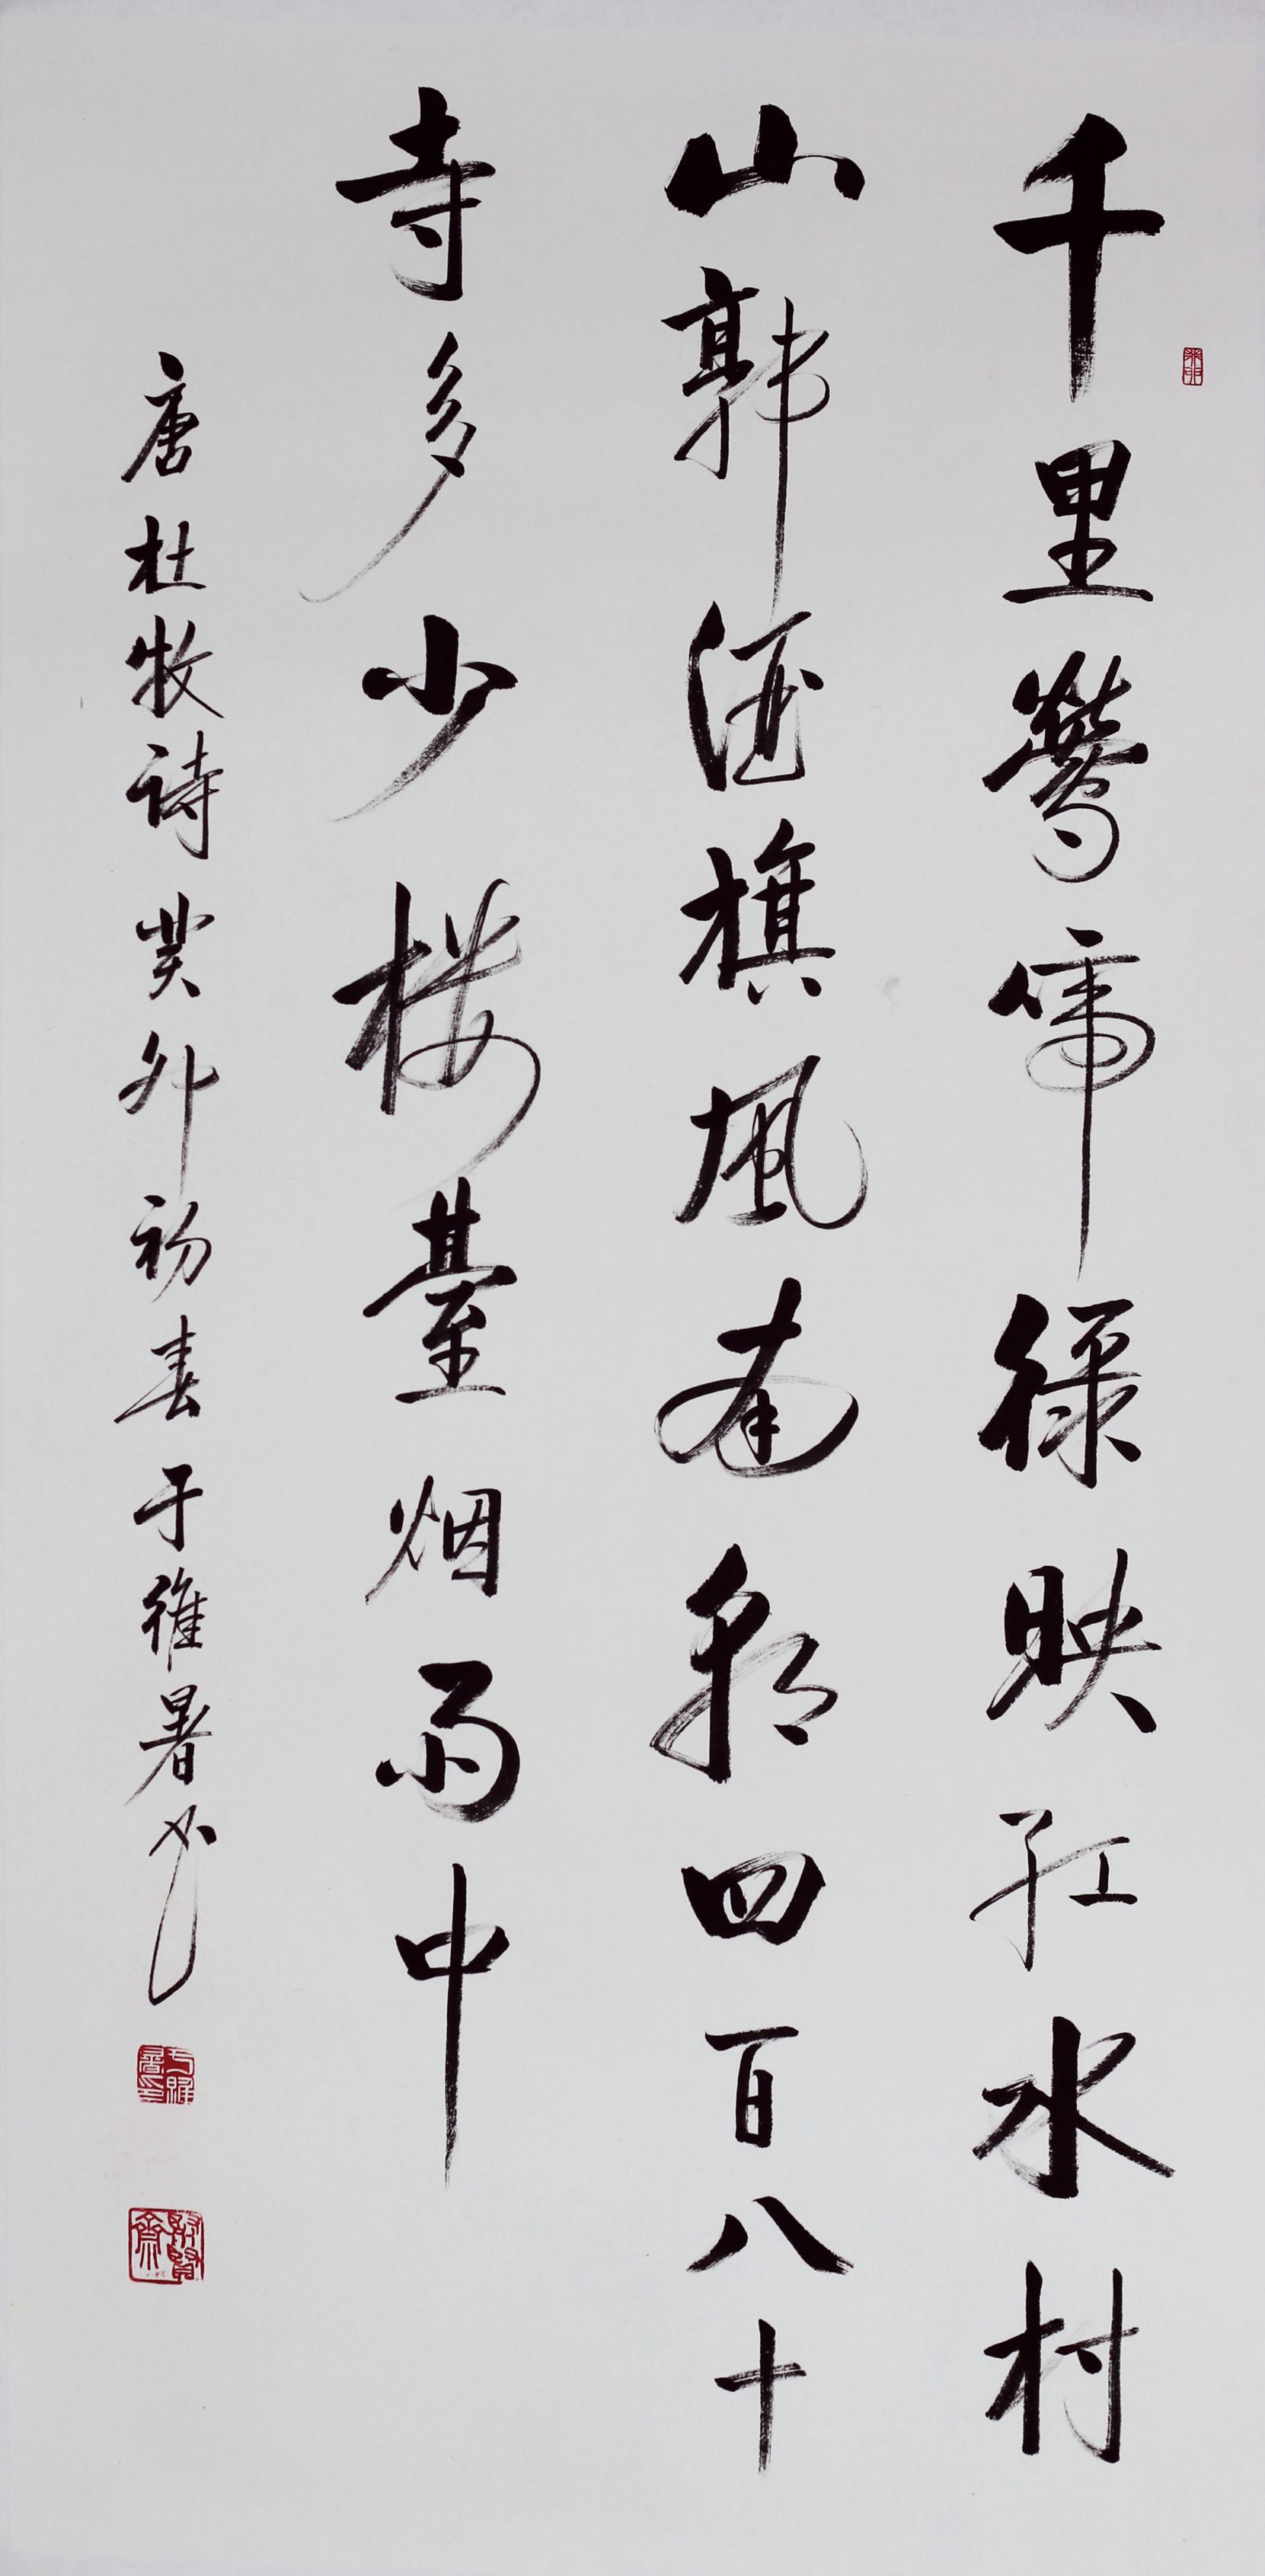 千里鶯啼綠映紅水村
山郭酒旗風南朝四百八十
寺多少楼臺烟雨中
唐杜牧诗癸卯初春于維暑书